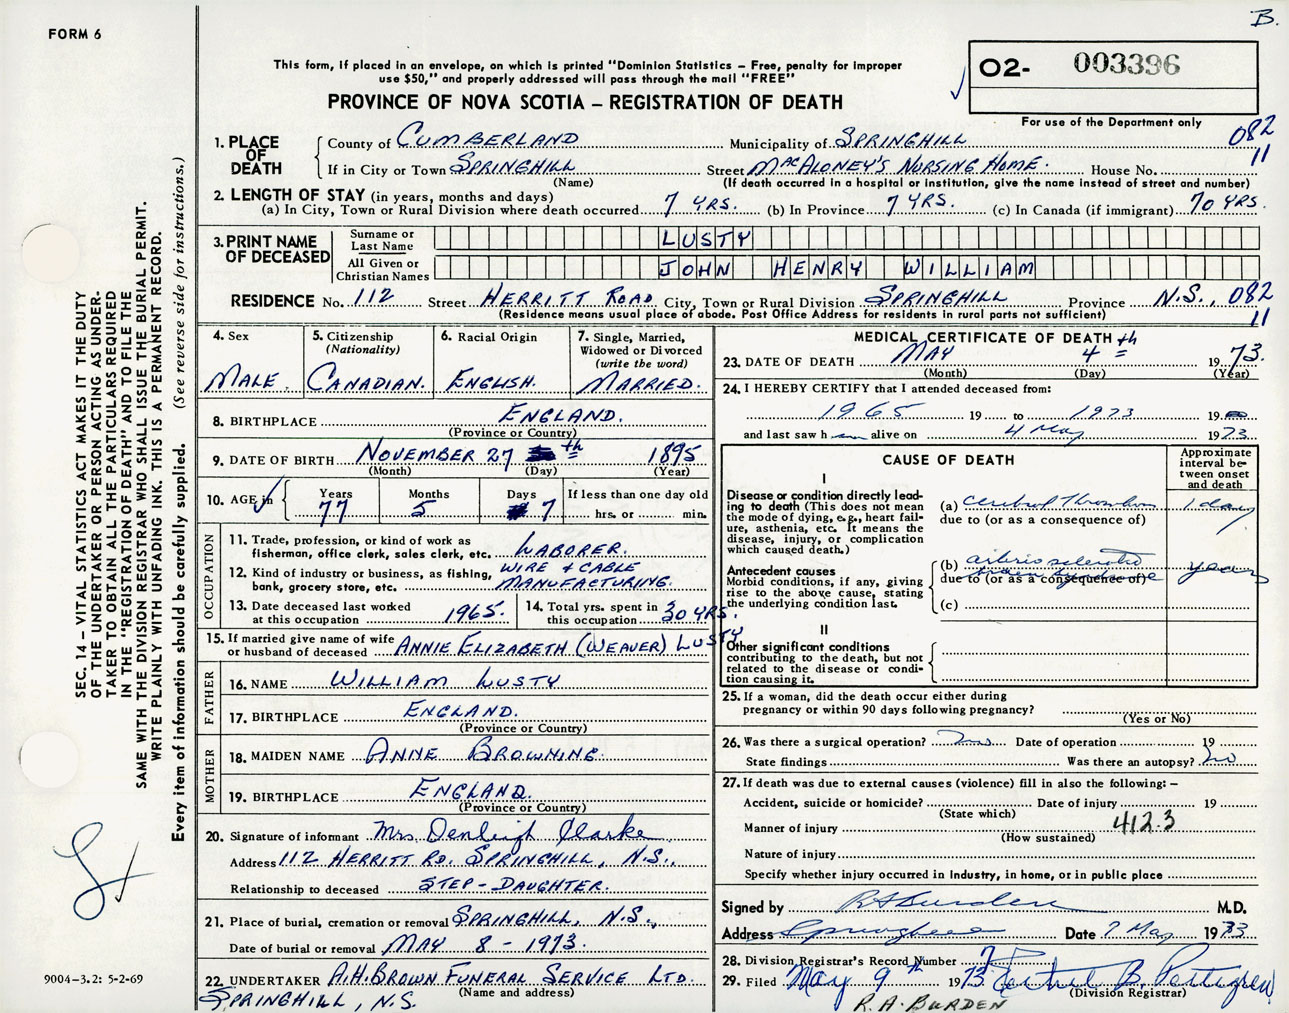 B.
FORM 6
This form, if placed in an envelope, on which is printed "Dominion Statistics – Free, penalty for improper
use $50," and properly addressed will pass through the mail "FREE"
PROVINCE OF NOVA SCOTIA – REGISTRATION OF DEATH
O2- 003396
For use of the Department only
1. PLACE OF DEATH
County of CUMBERLAND Municipality of SPRINGHILL 082
If in City or Town SPRINGHILL Street MacALONEY'S NURSING HOME. House No. 11
(Name) (If death occurred in a hospital or institution, give the name instead of street and number)
2. LENGTH OF STAY (in years, months and days)
(a) In City, Town or Rural Division where death occurred 7 YRS. (b) In Province 7 YRS. (c) In Canada (if immigrant) 70 YRS.
3. PRINT NAME OF DECEASED
Surname or Last Name LUSTY
All Given or Christian Names JOHN HENRY WILLIAM
RESIDENCE No. 112 Street HERRITT ROAD City, Town or Rural Division SPRINGHILL Province N.S., 082
(Residence means usual place of abode. Post Office Address for residents in rural parts not sufficient) 11
4. Sex MALE.
5. Citizenship (Nationality) CANADIAN.
6. Racial Origin ENGLISH.
7. Single, Married, Widowed or Divorced (write the word) MARRIED.
8. BIRTHPLACE ENGLAND.
(Province or Country)
9. DATE OF BIRTH NOVEMBER 27 th 1895
(Month) (Day) (Year)
10. AGE in Years 77 Months 5 Days 7 If less than one day old
hrs. or min.
OCCUPATION
11. Trade, profession, or kind of work as
fisherman, office clerk, sales clerk, etc. LABORER.
12. Kind of industry or business, as fishing, WIRE + CABLE
bank, grocery store, etc. MANUFACTURING.
13. Date deceased last worked
at this occupation 1965.
14. Total yrs. spent in
this occupation 30 YRS.
15. If married give name of wife
or husband of deceased ANNIE ELIZABETH (WEAVER) LUSTY
FATHER
16. NAME WILLIAM LUSTY
17. BIRTHPLACE ENGLAND.
(Province or Country)
MOTHER
18. MAIDEN NAME ANNE BROWNING.
19. BIRTHPLACE ENGLAND.
(Province or Country)
20. Signature of informant Mrs. Denleigh Clarke
Address 112 HERRITT RD. SPRINGHILL, N.S.,
Relationship to deceased STEP-DAUGHTER.
21. Place of burial, cremation or removal SPRINGHILL, N.S.,
Date of burial or removal MAY 8 - 1973.
22. UNDERTAKER A.H. BROWN FUNERAL SERVICE LTD.
(Name and address)
SPRINGHILL, N.S.
MEDICAL CERTIFICATE OF DEATH
23. DATE OF DEATH MAY 4 th 1973.
(Month) (Day) (Year)
24. I HEREBY CERTIFY that I attended deceased from:
1965 19 to 1973 19
and last saw h alive on 4 May 1973
CAUSE OF DEATH
Approximate interval between onset and death
I
Disease or condition directly leading to death (This does not
mean the mode of dying, e.g., heart failure,
asthenia, etc. It means the
disease, injury, or complication
which caused death.)
(a) cerebral Thrombosis 1 day
due to (or as a consequence of)
Antecedent causes
Morbid conditions, if any, giving
rise to the above cause, stating
the underlying condition last.
(b) years
due to (or as a consequence of)
(c)
II
Other significant conditions
contributing to the death, but not
related to the disease or condition
causing it.
25. If a woman, did the death occur either during
pregnancy or within 90 days following pregnancy?
(Yes or No)
26. Was there a surgical operation? no Date of operation 19
State findings Was there an autopsy? no
27. If death was due to external causes (violence) fill in also the following: –
Accident, suicide or homicide? Date of injury 19
(State which)
Manner of injury 412.3
(How sustained)
Nature of injury
Specify whether injury occurred in industry, in home, or in public place
Signed by RA Burden M.D.
Address Springhill Date 7 May 1973
28. Division Registrar's Record Number 7
29. Filed May 9th 1973 B. Pettigrew
(Division Registrar)
R.A. BURDEN
SEC. 14 – VITAL STATISTICS ACT MAKES IT THE DUTY
OF THE UNDERTAKER OR PERSON ACTING AS UNDER-
TAKER TO OBTAIN ALL THE PARTICULARS REQUIRED
IN THE "REGISTRATION OF DEATH" AND TO FILE THE
SAME WITH THE DIVISION REGISTRAR WHO SHALL ISSUE THE BURIAL PERMIT.
WRITE PLAINLY WITH UNFADING INK. THIS IS A PERMANENT RECORD.
Every item of information should be carefully supplied. (See reverse side for instructions.)
9004–3.2: 5-2-69